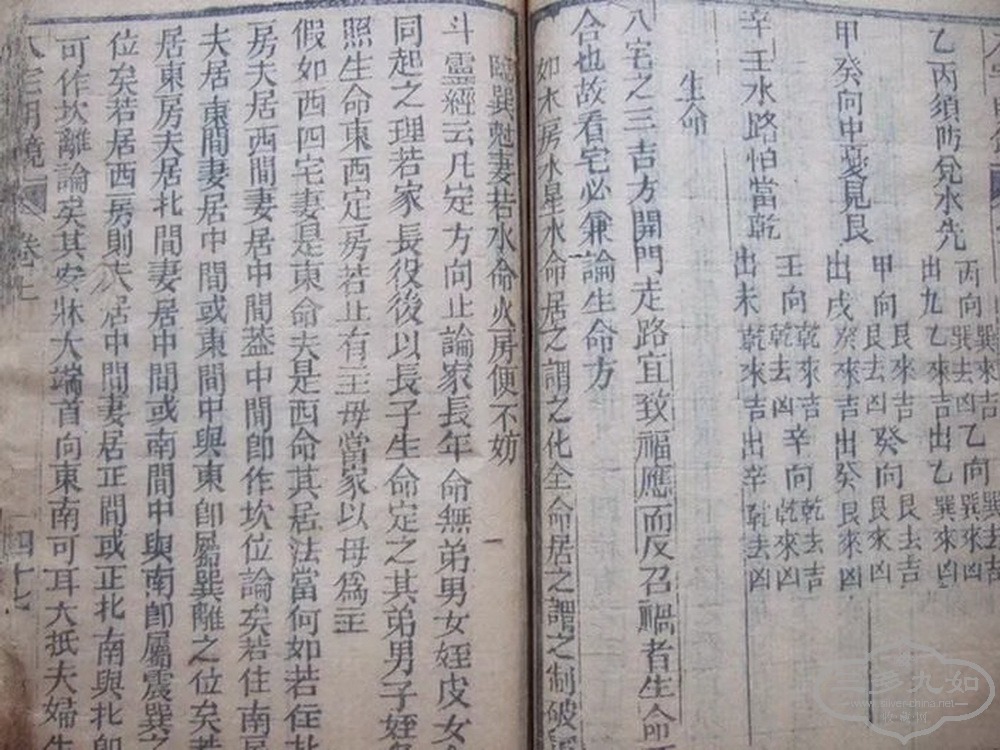 乙丙須防兌水先
丙向巽來吉巽去凶乙向巽去吉巽來凶
出九乙來吉出乙
甲癸向中憂見艮
甲向艮來吉艮去凶癸向艮去吉艮來凶
出戌癸來吉出癸
辛壬水路怕當乾
壬向乾來吉乾去凶辛向乾去吉乾來凶
出未乾來吉出辛
生命
八宅之三吉方開門走路宜致福應而反召禍者生命
合也故看宅必兼論生命方
如木房水星水命居之謂之化全命居之謂之制破
臨巽魁妻若水命火房便不妨
斗靈經云凡定方向止論家長年命無弟男女姪
同起之理若家長役後以長子生命定之其弟男子姪
照生命東西定房若止有主母當家以母爲主
假如西四宅妻是東命夫是西命其居法當何如若住北
房夫居西間妻居中間蓋中間卽作坎位論矣若住南
夫居東間妻居中間或東間中與東卽屬巽離之位矣若
居東房夫居北間妻居中間或南間中與南卽屬震巽之
位矣若居西房則夫居中間妻居正間或正北南與北卽
可作坎離論矣其安牀大端首向東南可耳大抵夫婦
八宅明鏡 卷 四十七
三多九如
www.silver-china.net
收藏網